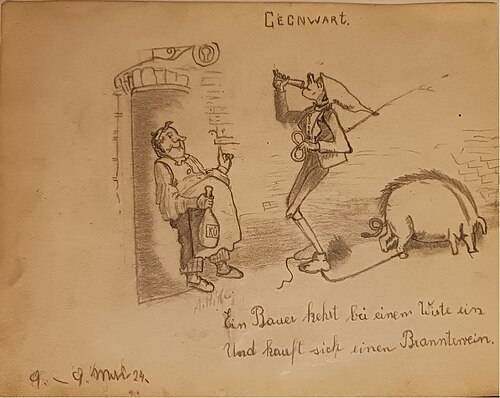 GEGNWART.
Ein Bauer kehrt bei einem Wirte ein
Und kauft sich einen Branntewein.
24.